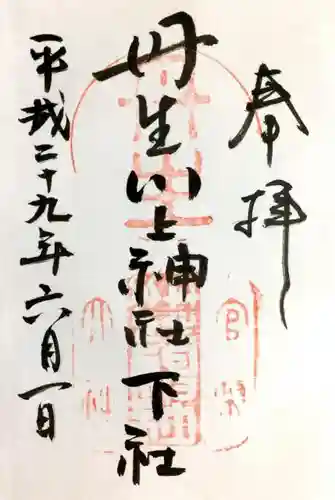 奉拝
丹生川上神社下社
平成二十九年六月一日
官幣
大社